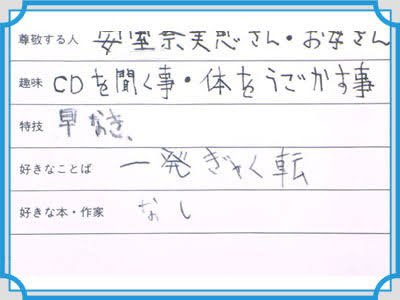 尊敬する人 安室奈美恵さん・お母さん
趣味 CDを聞く事・体をうごかす事
特技 早なき、
好きなことば 一発ぎゃく転
好きな本・作家 なし